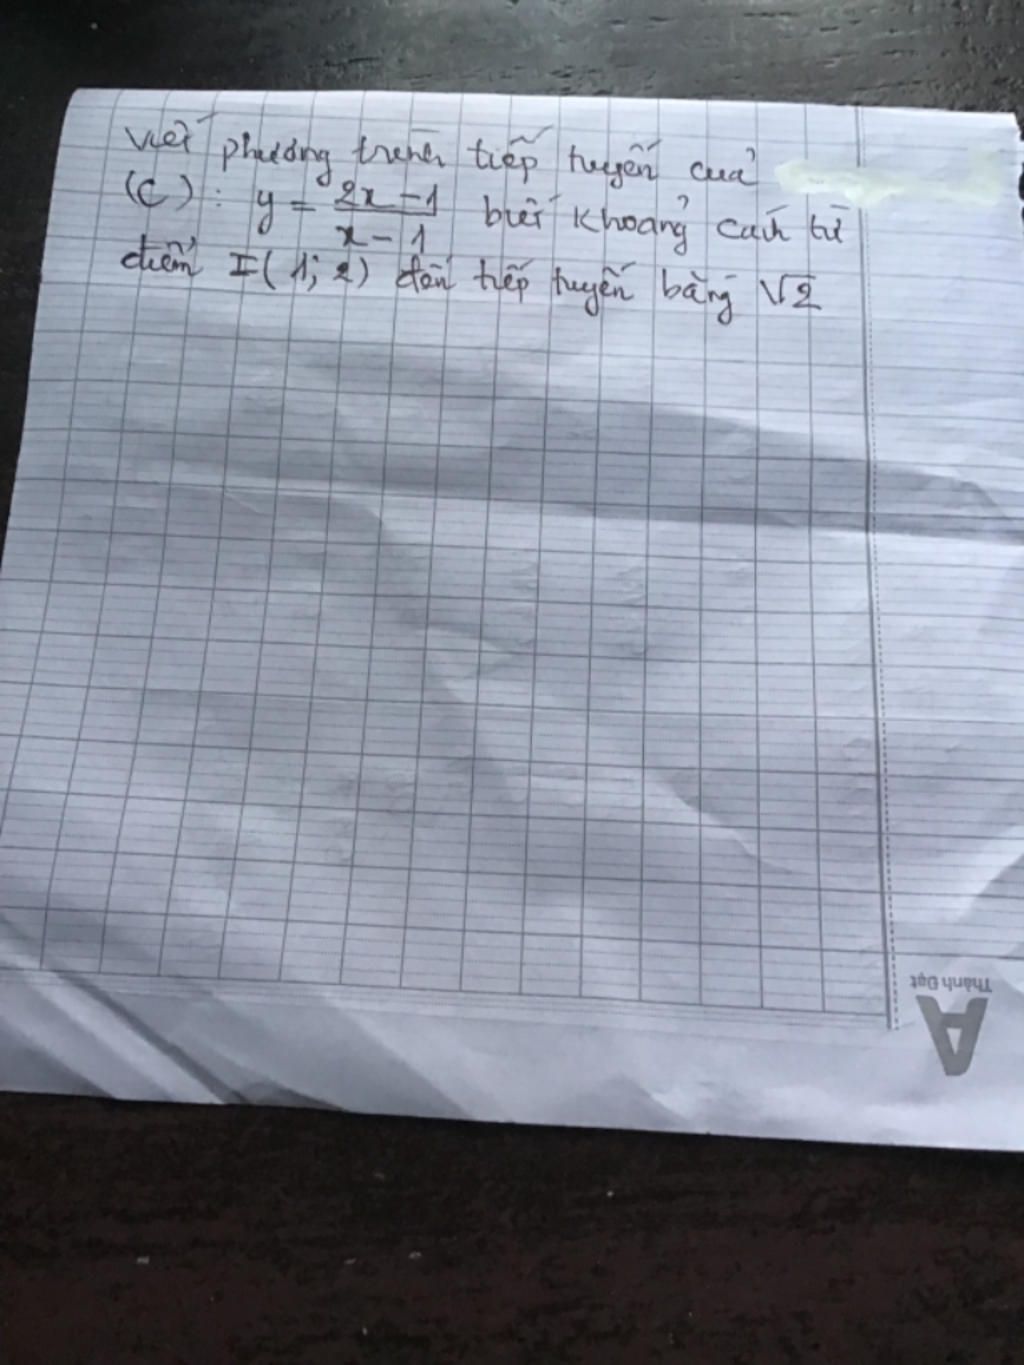 Viết phương trình tiếp tuyến của
(C): y = \frac{2x-1}{x-1} biết khoảng cách từ
điểm I(1; 2) đến tiếp tuyến bằng √2
Thành Đạt
A